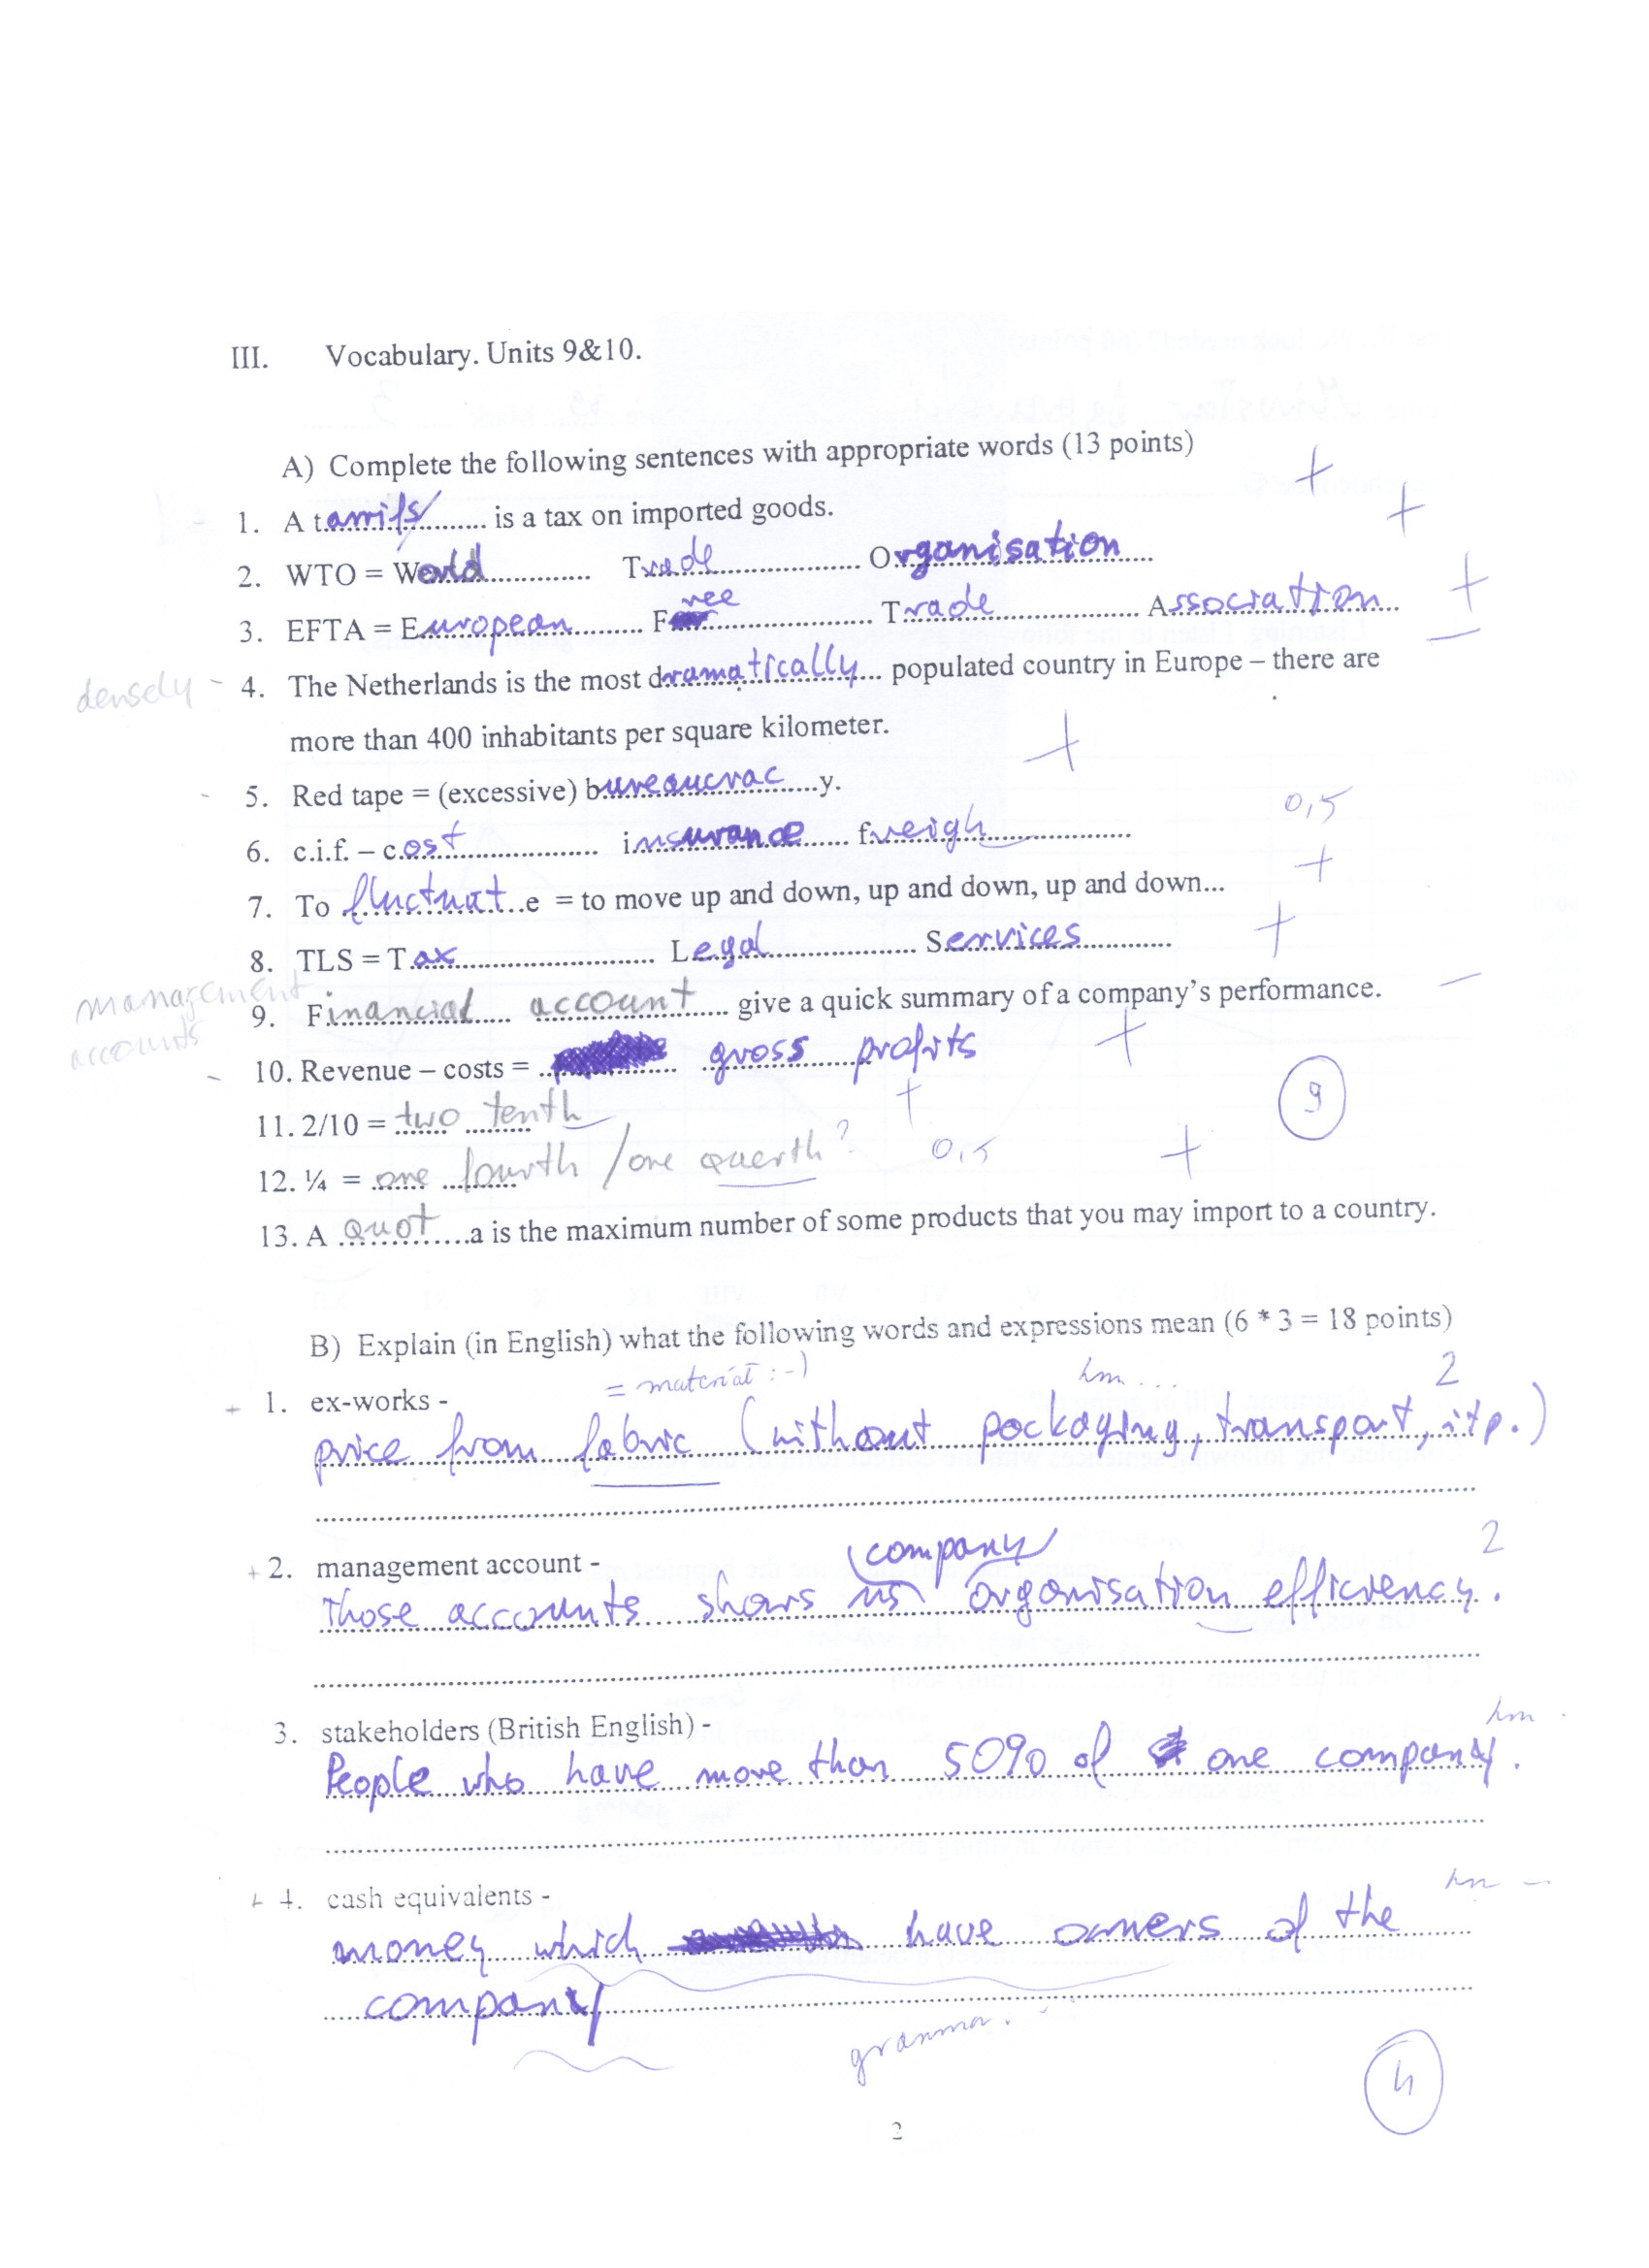 III. Vocabulary. Units 9&10.
A) Complete the following sentences with appropriate words (13 points) +
1. A tarrifs is a tax on imported goods. +
2. WTO = World Trade Organisation
3. EFTA = European Free Trade Association +
densely - 4. The Netherlands is the most dramatically populated country in Europe – there are —
more than 400 inhabitants per square kilometer.
- 5. Red tape = (excessive) bureaucracy. +
6. c.i.f. – cost insurance freigh 0,5
7. To fluctuate = to move up and down, up and down, up and down... +
8. TLS = Tax Legal Services +
management
accounts
9. Financial account give a quick summary of a company's performance. —
- 10. Revenue – costs = gross profits +
11. 2/10 = two tenth + 9
12. ¼ = one fourth / one querth ? 0,5 +
13. A quota is the maximum number of some products that you may import to a country.
B) Explain (in English) what the following words and expressions mean (6 * 3 = 18 points)
+ 1. ex-works - = materiał :-) hm... 2
price from fabric (without packaging, transport, itp.)
+ 2. management account - company 2
Those accounts shows us organisation efficiency.
3. stakeholders (British English) - hm
People who have more than 50% of one company.
+ 4. cash equivalents - hm
money which have owners of the
company
4
2